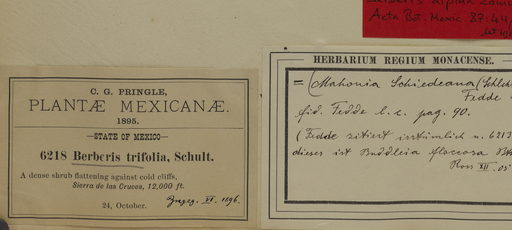 Berberis alpina
Acta Bot. Mexic. 87:
C. G. PRINGLE,
PLANTÆ MEXICANÆ.
1895.
—STATE OF MEXICO—
6218 Berberis trifolia, Schult.
A dense shrub flattening against cold cliffs,
Sierra de las Cruces, 12,000 ft.
24, October.
HERBARIUM REGIUM MONACENSE.
= (Mahonia Schiedeana (Schlcht
Fedde
fid. Fedde l. c. pag. 90.
(Fedde zitiert irrtümlich n. 6213
dieses ist Buddleia floccosa Bth
Ross XII. 05